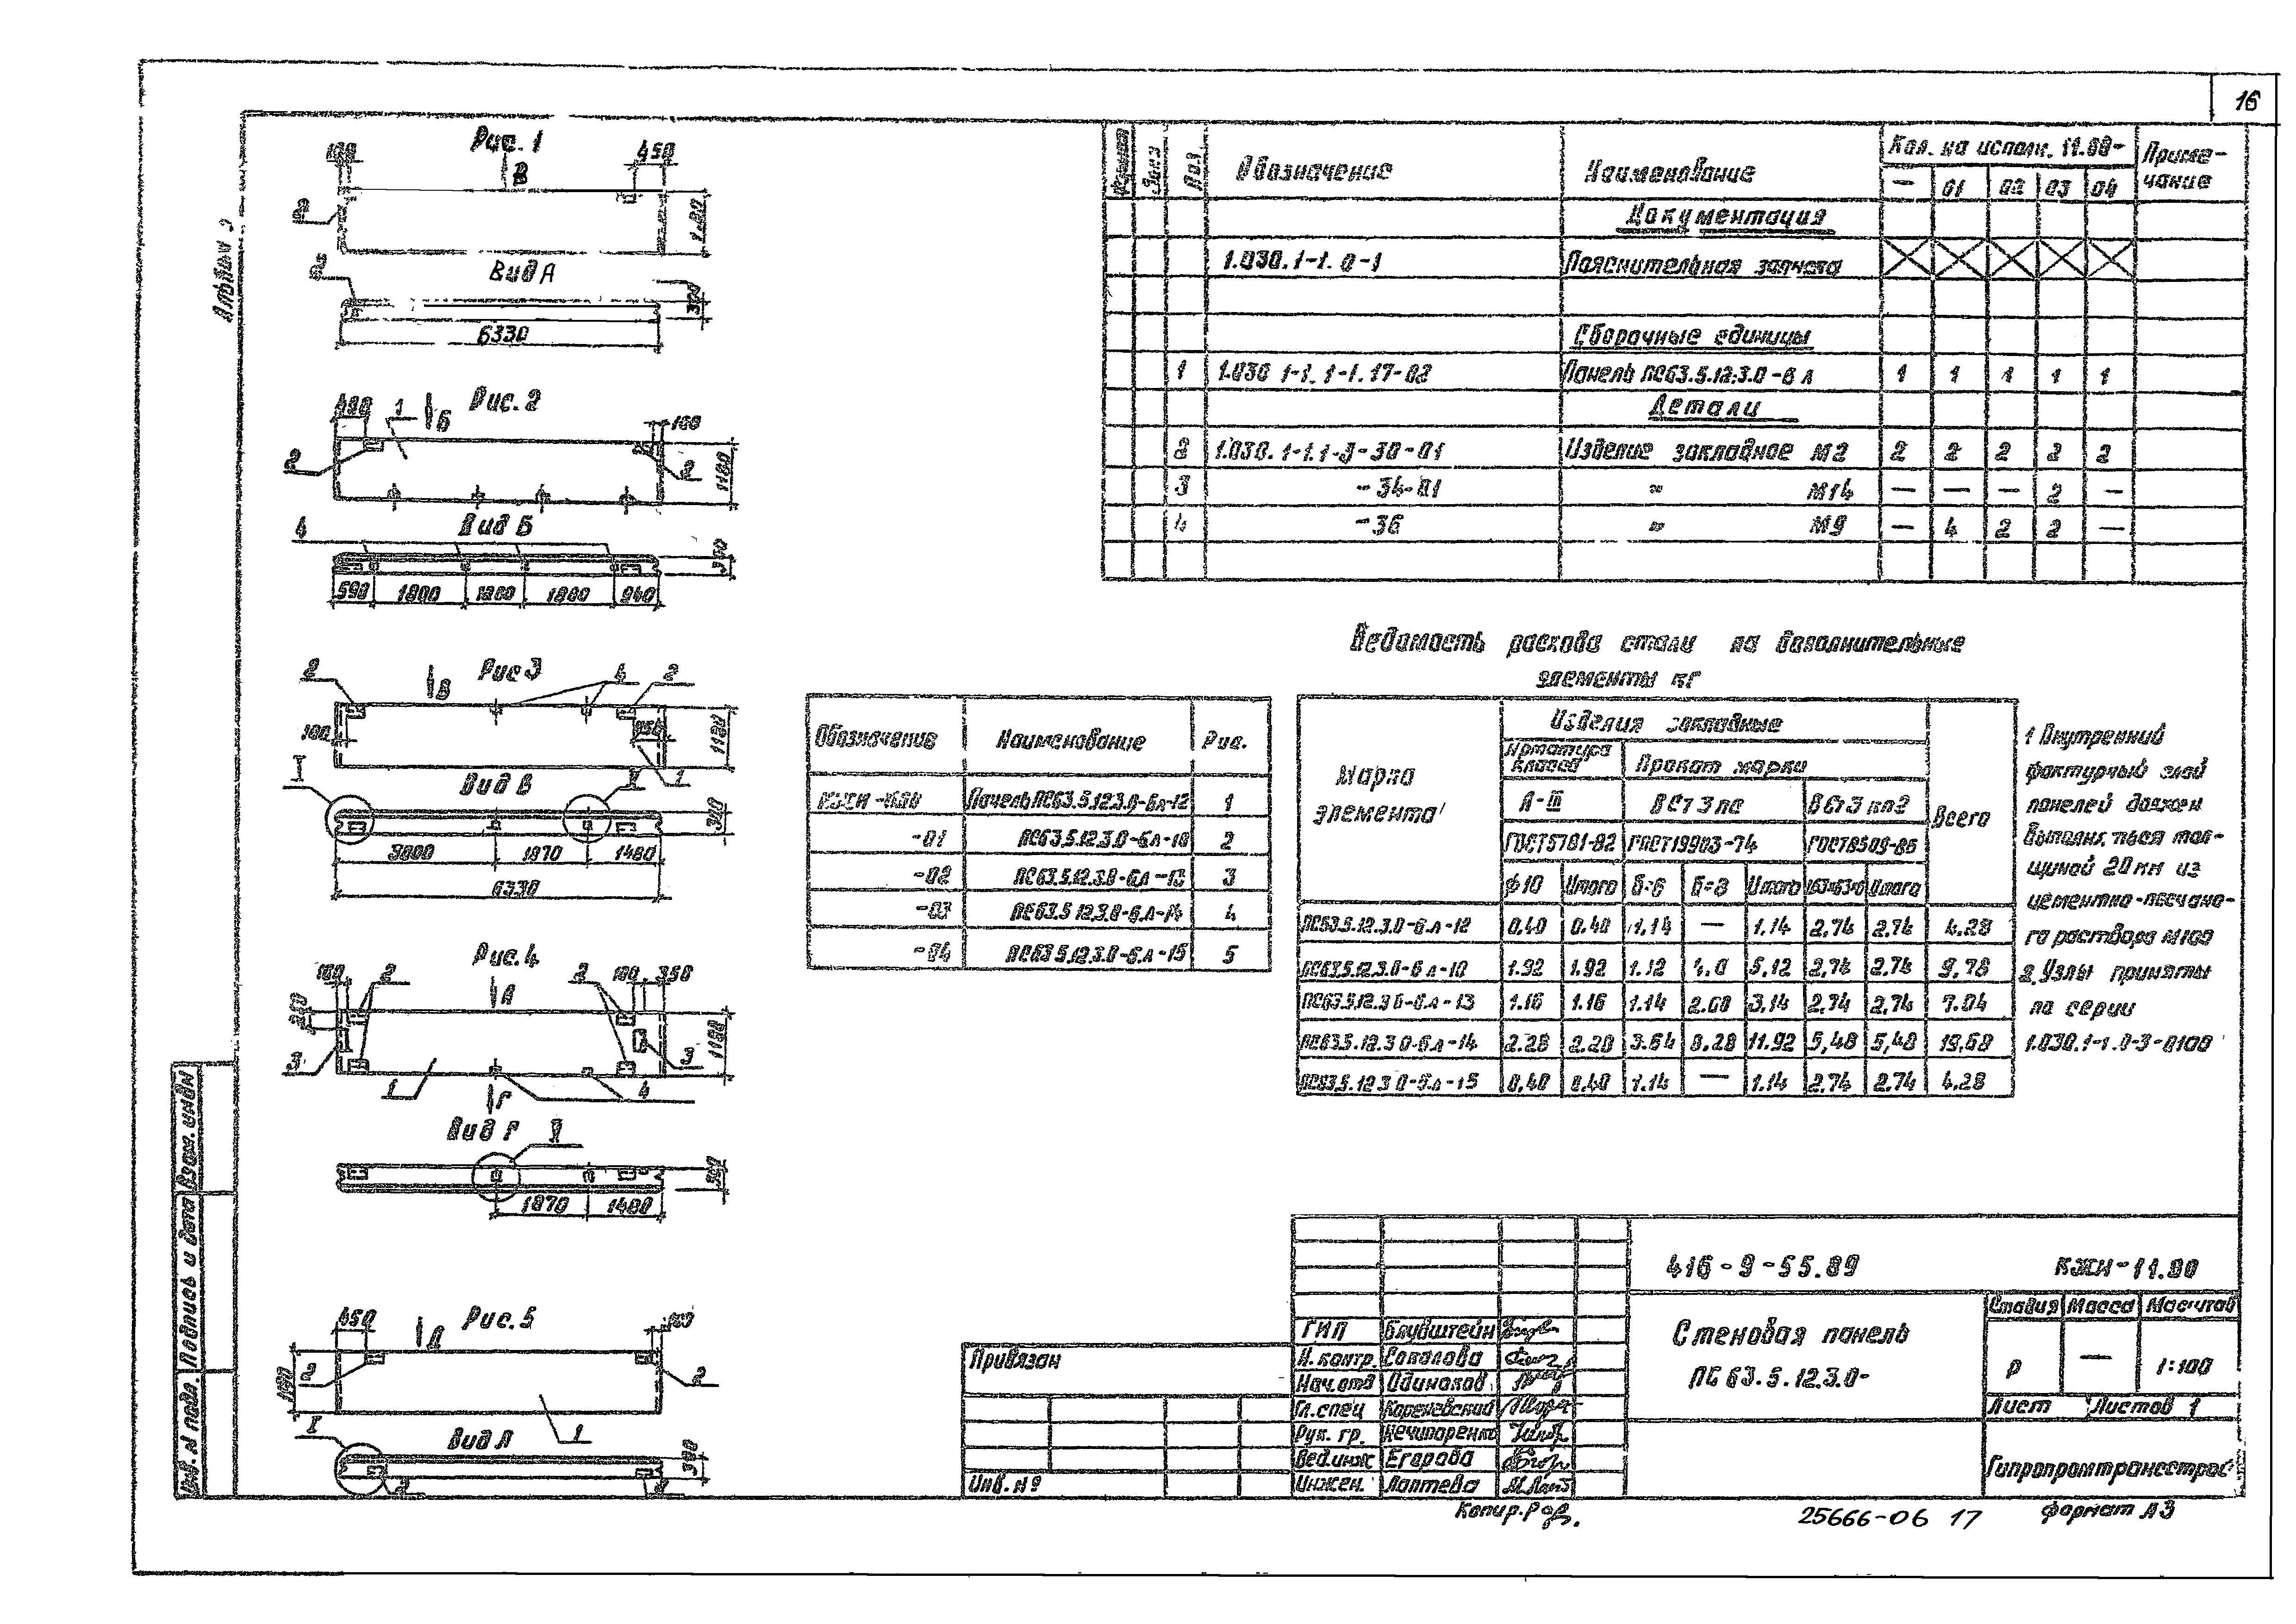 16
Альбом 3
Рис. 1
100
450
В
2
1180
Вид А
2
300
6330
Рис. 2
480
1
Б
100
2
2
1180
Вид Б
4
300
590 1800 1200 1800 940
Рис 3
2
В
4
2
100
450
1180
1
Вид В
I
300
3000 1870 1480
6330
Рис. 4
100
2
А
2
100
350
3
3
1180
1
Г
4
Вид Г
300
1870 1480
Рис. 5
450
Д
100
2
2
1180
1
Вид Д
I
300
2
2
Поз.
Обозначение
Наименование
Кол. на исполн. 11.00-
Приме-
чание
— 01 02 03 04
Документация
1.030.1-1. 0-1 Пояснительная записка
Сборочные единицы
1 1.030 1-1. 1-1. 17-02 Панель ПС63.5.12.3.0-6 л 1 1 1 1 1
Детали
2 1.030.1-1.1-3-30-01 Изделие закладное М2 2 2 2 2 2
3 -34-01 " М14 — — — 2 —
4 -36 " М9 — 4 2 2 —
Обозначение Наименование Рис.
КЖИ-11.00 Панель ПС63.5.12.3.0-6л-12 1
-01 ПС63.5.12.3.0-6.л-10 2
-02 ПС63.5.12.3.0-6.л-13 3
-03 ПС63.5 12.3.0-6.л-14 4
-04 ПС63 5.12.3.0-6.л-15 5
Ведомость расхода стали на дополнительные
элементы кг
Марка
элемента
Изделия закладные
Всего
Арматура
класса
Прокат марки
А-III ВСт 3 пс ВСт 3 кп2
ГОСТ5781-82 ГОСТ19903-74 ГОСТ8509-86
ф10 Итого б=6 б=8 Итого 63×63×6 Итого
ПС63.5.12.3.0-6.л-12 0,40 0,40 1,14 — 1.14 2,74 2,74 4.28
ПС63.5.12.3.0-6 л-10 1.92 1.92 1.12 4.0 5,12 2,74 2,74 9,78
ПС63.5.12.3 0-6.л-13 1.16 1.16 1.14 2.00 3.14 2,74 2,74 7.04
ПС63.5.12.3 0-6.л-14 2.28 2.28 3.64 8.28 11.92 5,48 5,48 19,68
ПС63.5.12 3 0-6.л-15 0,40 0,40 1.14 — 1.14 2.74 2.74 4.28
1 Внутренний
фактурный слой
панелей должен
выполняться тол-
щиной 20 мм из
цементно-песчано-
го раствора М100
2. Узлы приняты
по серии
1.030.1-1.0-3-0100
Взам. инв.№
Подпись и дата
Инв. № подл.
Привязан
Инв. №
ГИП Блувштейн
Н. контр. Соколова
Нач. отд Одиноков
Гл. спец Кореневский
Рук. гр. Нечипоренко
Вед.инж Егорова
Инжен. Лаптева
416-9-55.89 КЖИ-11.00
Стеновая панель
ПС 63.5.12.3.0-
Стадия Масса Масштаб
Р — 1:100
Лист Листов 1
Гипропромтрансстрой
Копир.
25666-06 17
Формат А3